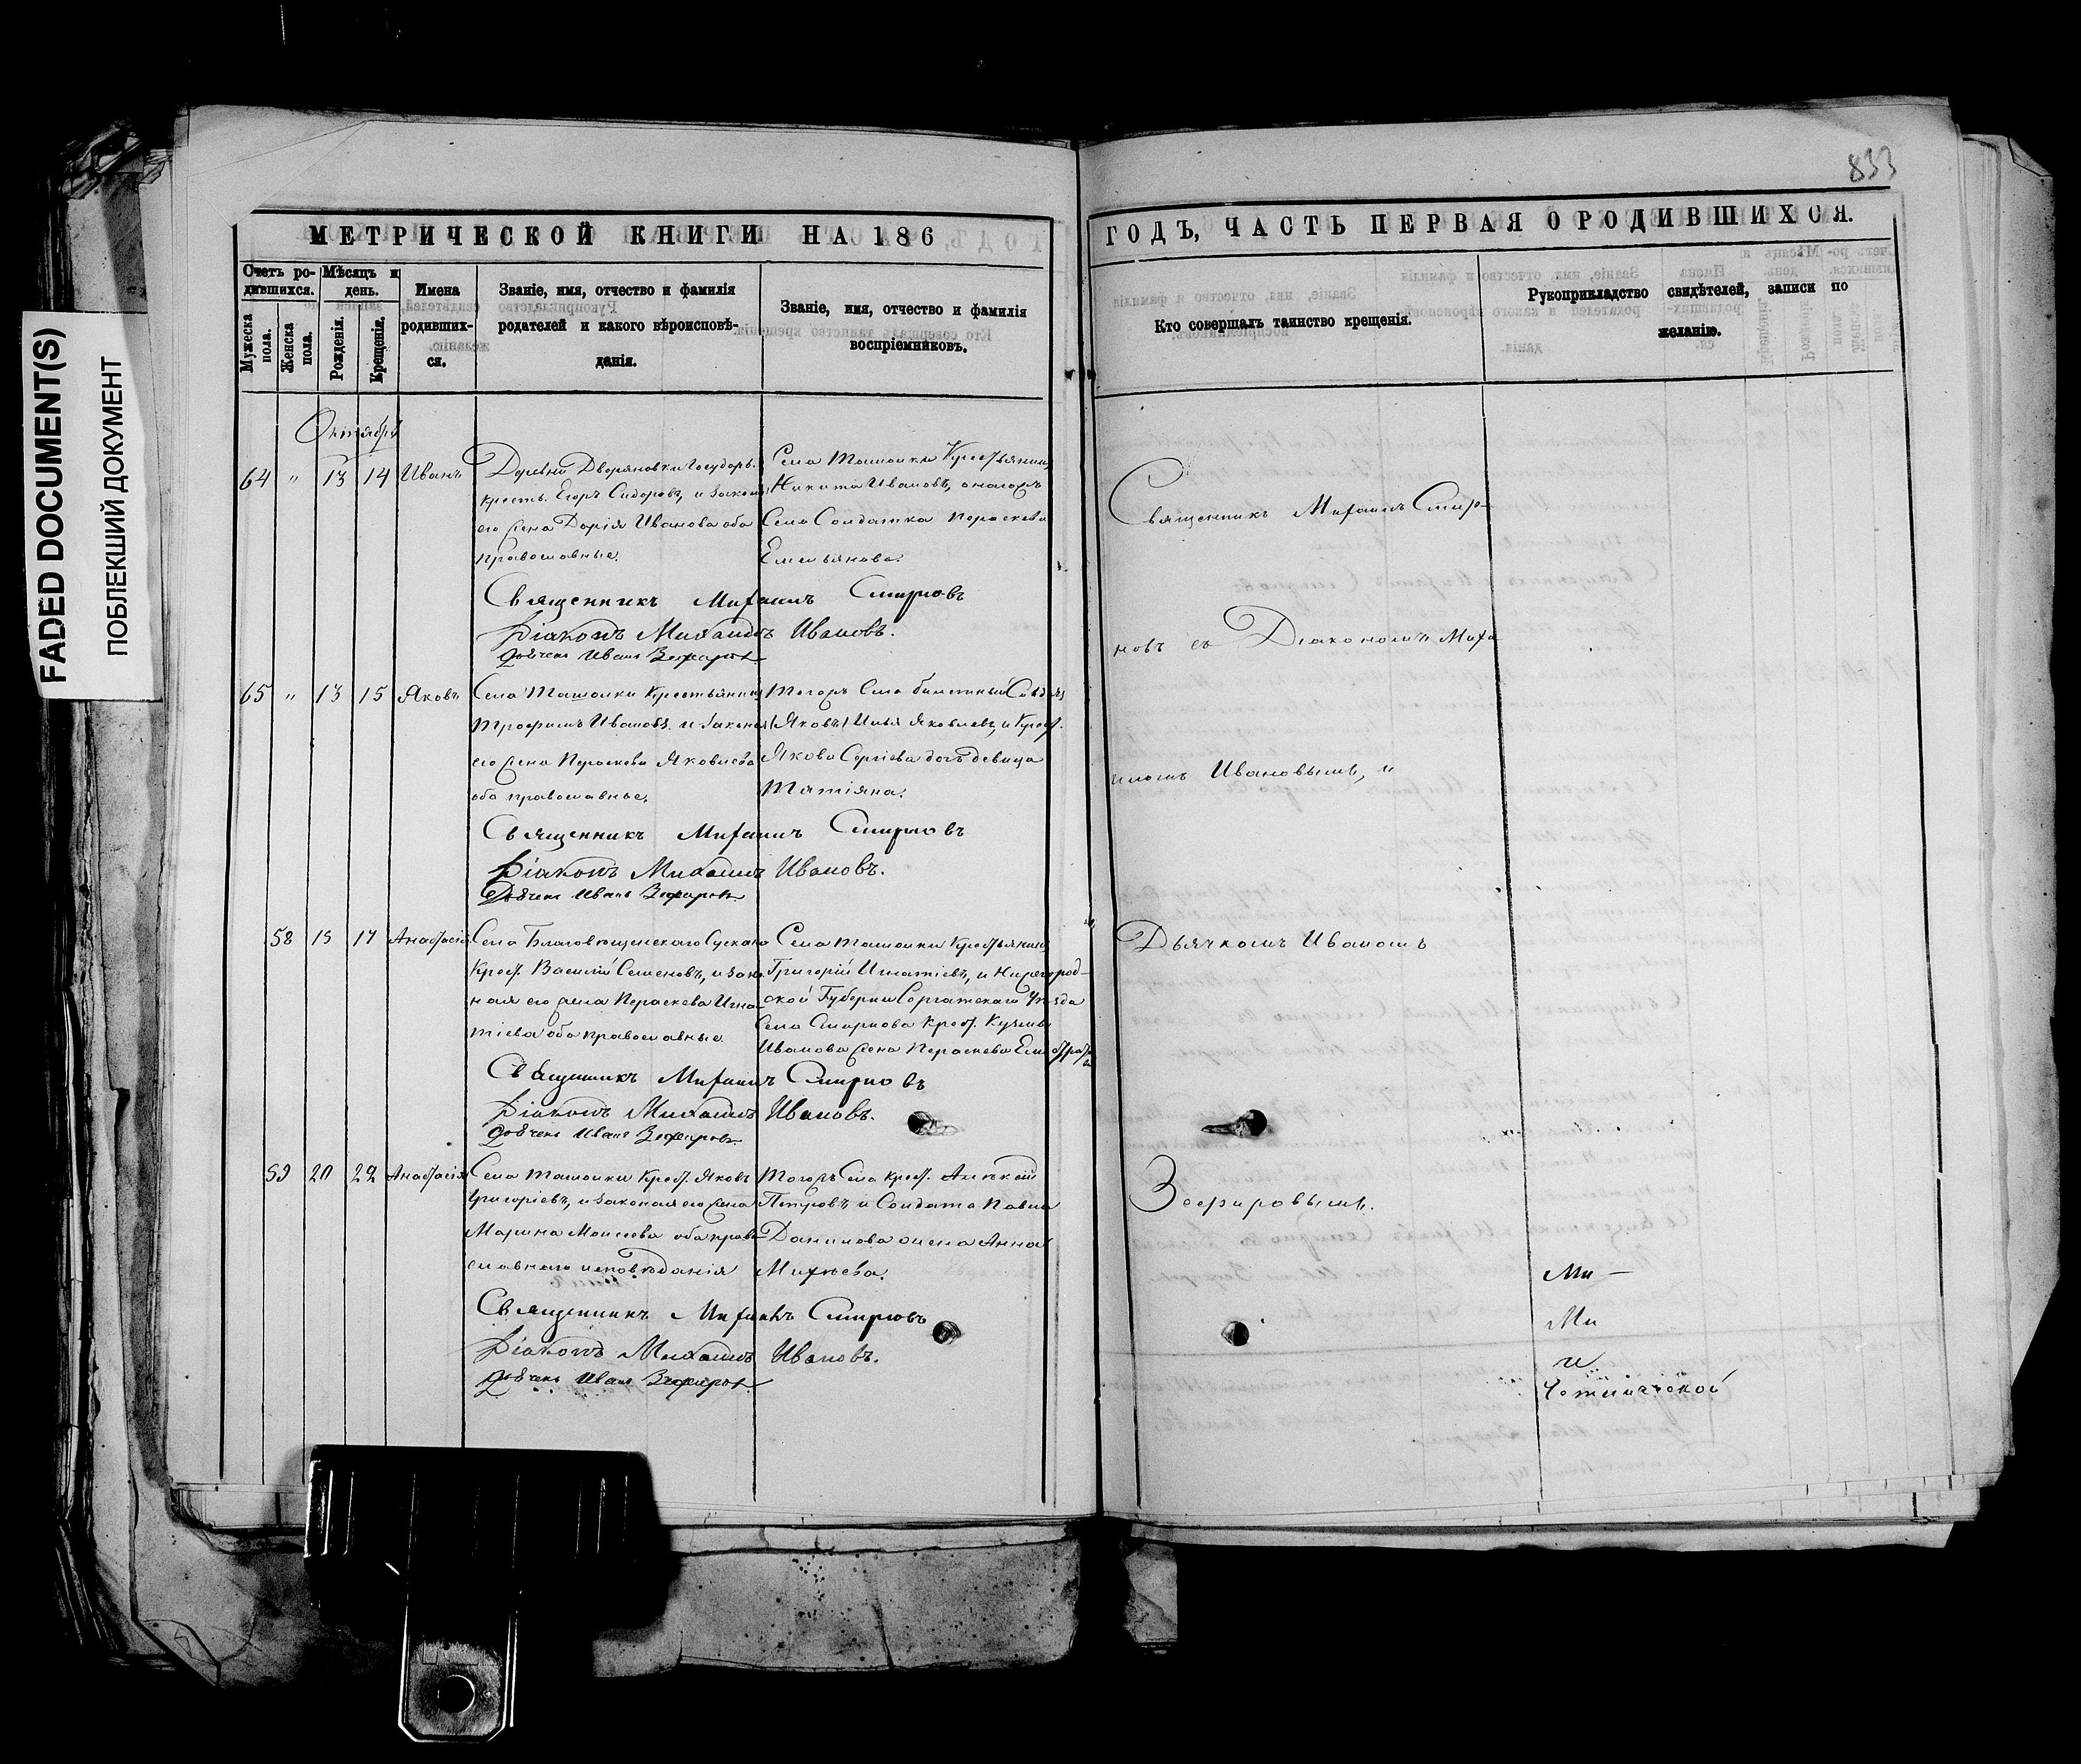 FADED DOCUMENT(S)
ПОБЛЕКШИЙ ДОКУМЕНТ
833
МЕТРИЧЕСКОЙ КНИГИ НА 186
ГОДЪ, ЧАСТЬ ПЕРВАЯ О РОДИВШИХСЯ.
Счетъ ро-
дившихся.
Мужеска
пола.
Женска
пола.
Мѣсяцъ и
день.
Рожденія.
Крещенія.
Имена
родивших-
ся.
Званіе, имя, отчество и фамилія
родителей и какого вѣроисповѣ-
данія.
Званіе, имя, отчество и фамилія
воспріемниковъ.
Кто совершалъ таинство крещенія.
Рукоприкладство свидѣтелей, записи по
желанію.
Октябрь
64 " 13 14 Иванъ
Деревни Дворяновки Государ.
крестъ. Егоръ Сидоровъ, и закон.
его жена Дарія Иванова оба
православные.
Села Ташолки Крестьянинъ
Никита Ивановъ, и
Села Солдатка Параскева
Емельянова.
Священникъ Михаилъ Смирновъ
Діаконъ Михаилъ Ивановъ.
Дьячекъ Иванъ Зефировъ
65 " 13 15 Яковъ
Села Ташолки Крестьянинъ
Трофимъ Ивановъ и законная
его жена Параскева Яковлева
оба православные.
Тогожъ Села билетный Солдатъ
(Яковъ) Илья Яковлевъ, и Крест.
Якова Сергіева дочь девица
Татіяна.
Священникъ Михаилъ Смирновъ
Діаконъ Михаилъ Ивановъ.
Дьячекъ Иванъ Зефировъ
58 15 17 Анастасія
Села Благовѣщенскаго Сускана
Крест. Василій Семеновъ, и закон-
ная его жена Параскева Игна-
тіева оба православные
Села Ташолки Крестьянинъ
Григорій Игнатіевъ, и Нижегород-
ской Губерніи Сергатскаго Уѣзда
Села Смирнова Крест. Кузьмы
Иванова жена Параскева
Священникъ Михаилъ Смирновъ
Діаконъ Михаилъ Ивановъ.
Дьячекъ Иванъ Зефировъ
59 20 22 Анастасія
Села Ташолки Крест. Яковъ
Григоріевъ, и законная его жена
Марина Моисеева оба право-
славнаго исповѣданія
Тогожъ Села Крест. Алексѣй
Петровъ и Солдата Павла
Данилова жена Анна
Михѣева.
Священникъ Михаилъ Смирновъ
Діаконъ Михаилъ Ивановъ.
Дьячекъ Иванъ Зефировъ
Священникъ Михаилъ Смир-
новъ съ Діакономъ Миха-
иломъ Ивановымъ, и
Дьячкомъ Иваномъ
Зефировымъ.
Ми-
Ми
и